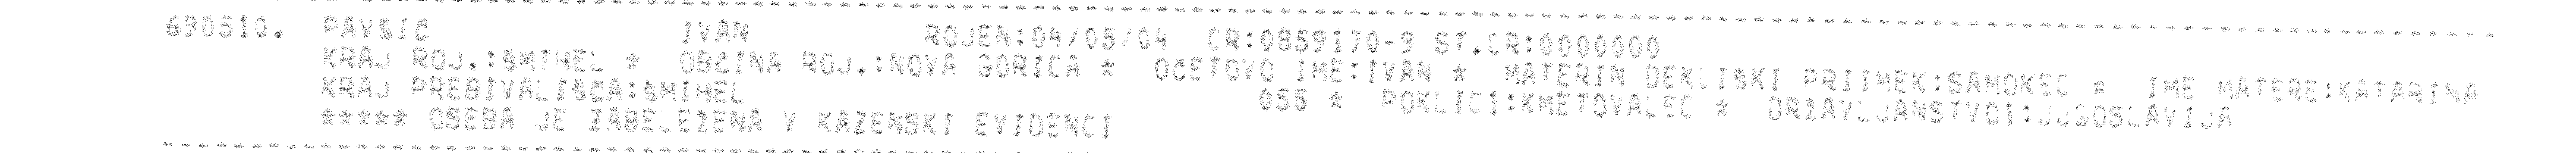 630510. PAVSIC IVAN ROJEN:04/05/04 CR:0859170-9 ST.CR:0000000
KRAJ ROJ.:SMIHEL * OBCINA ROJ.:NOVA GORICA * OCETOVO IME:IVAN * MATERIN DEKLISKI PRIIMEK:SAMOKEC * IME MATERE:KATARINA
KRAJ PREBIVALISCA:SMIHEL 055 * POKLICI:KMETOVALEC * DRZAVLJANSTVO1:JUGOSLAVIJA
***** OSEBA JE ZABELEZENA V KAZENSKI EVIDENCI